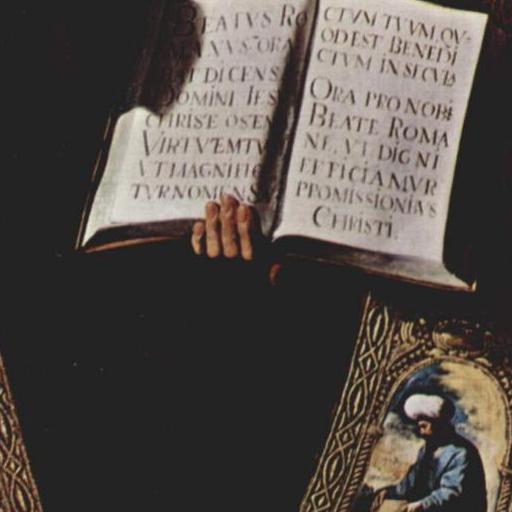 BEATVS RO
ORA
DICENS
DOMINI IES
CHRISTE OSTEN
VIRTVTEMTV
VTMAGNIFIC
TVRNOMENS
CTVM TVVM, QV-
OD EST BENEDI
CTVM IN SECVLA
ORA PRO NOBIS
BEATE ROMA
NE. VT DIGNI
EFFICIAMVR
PROMISSIONIBVS
CHRISTI.